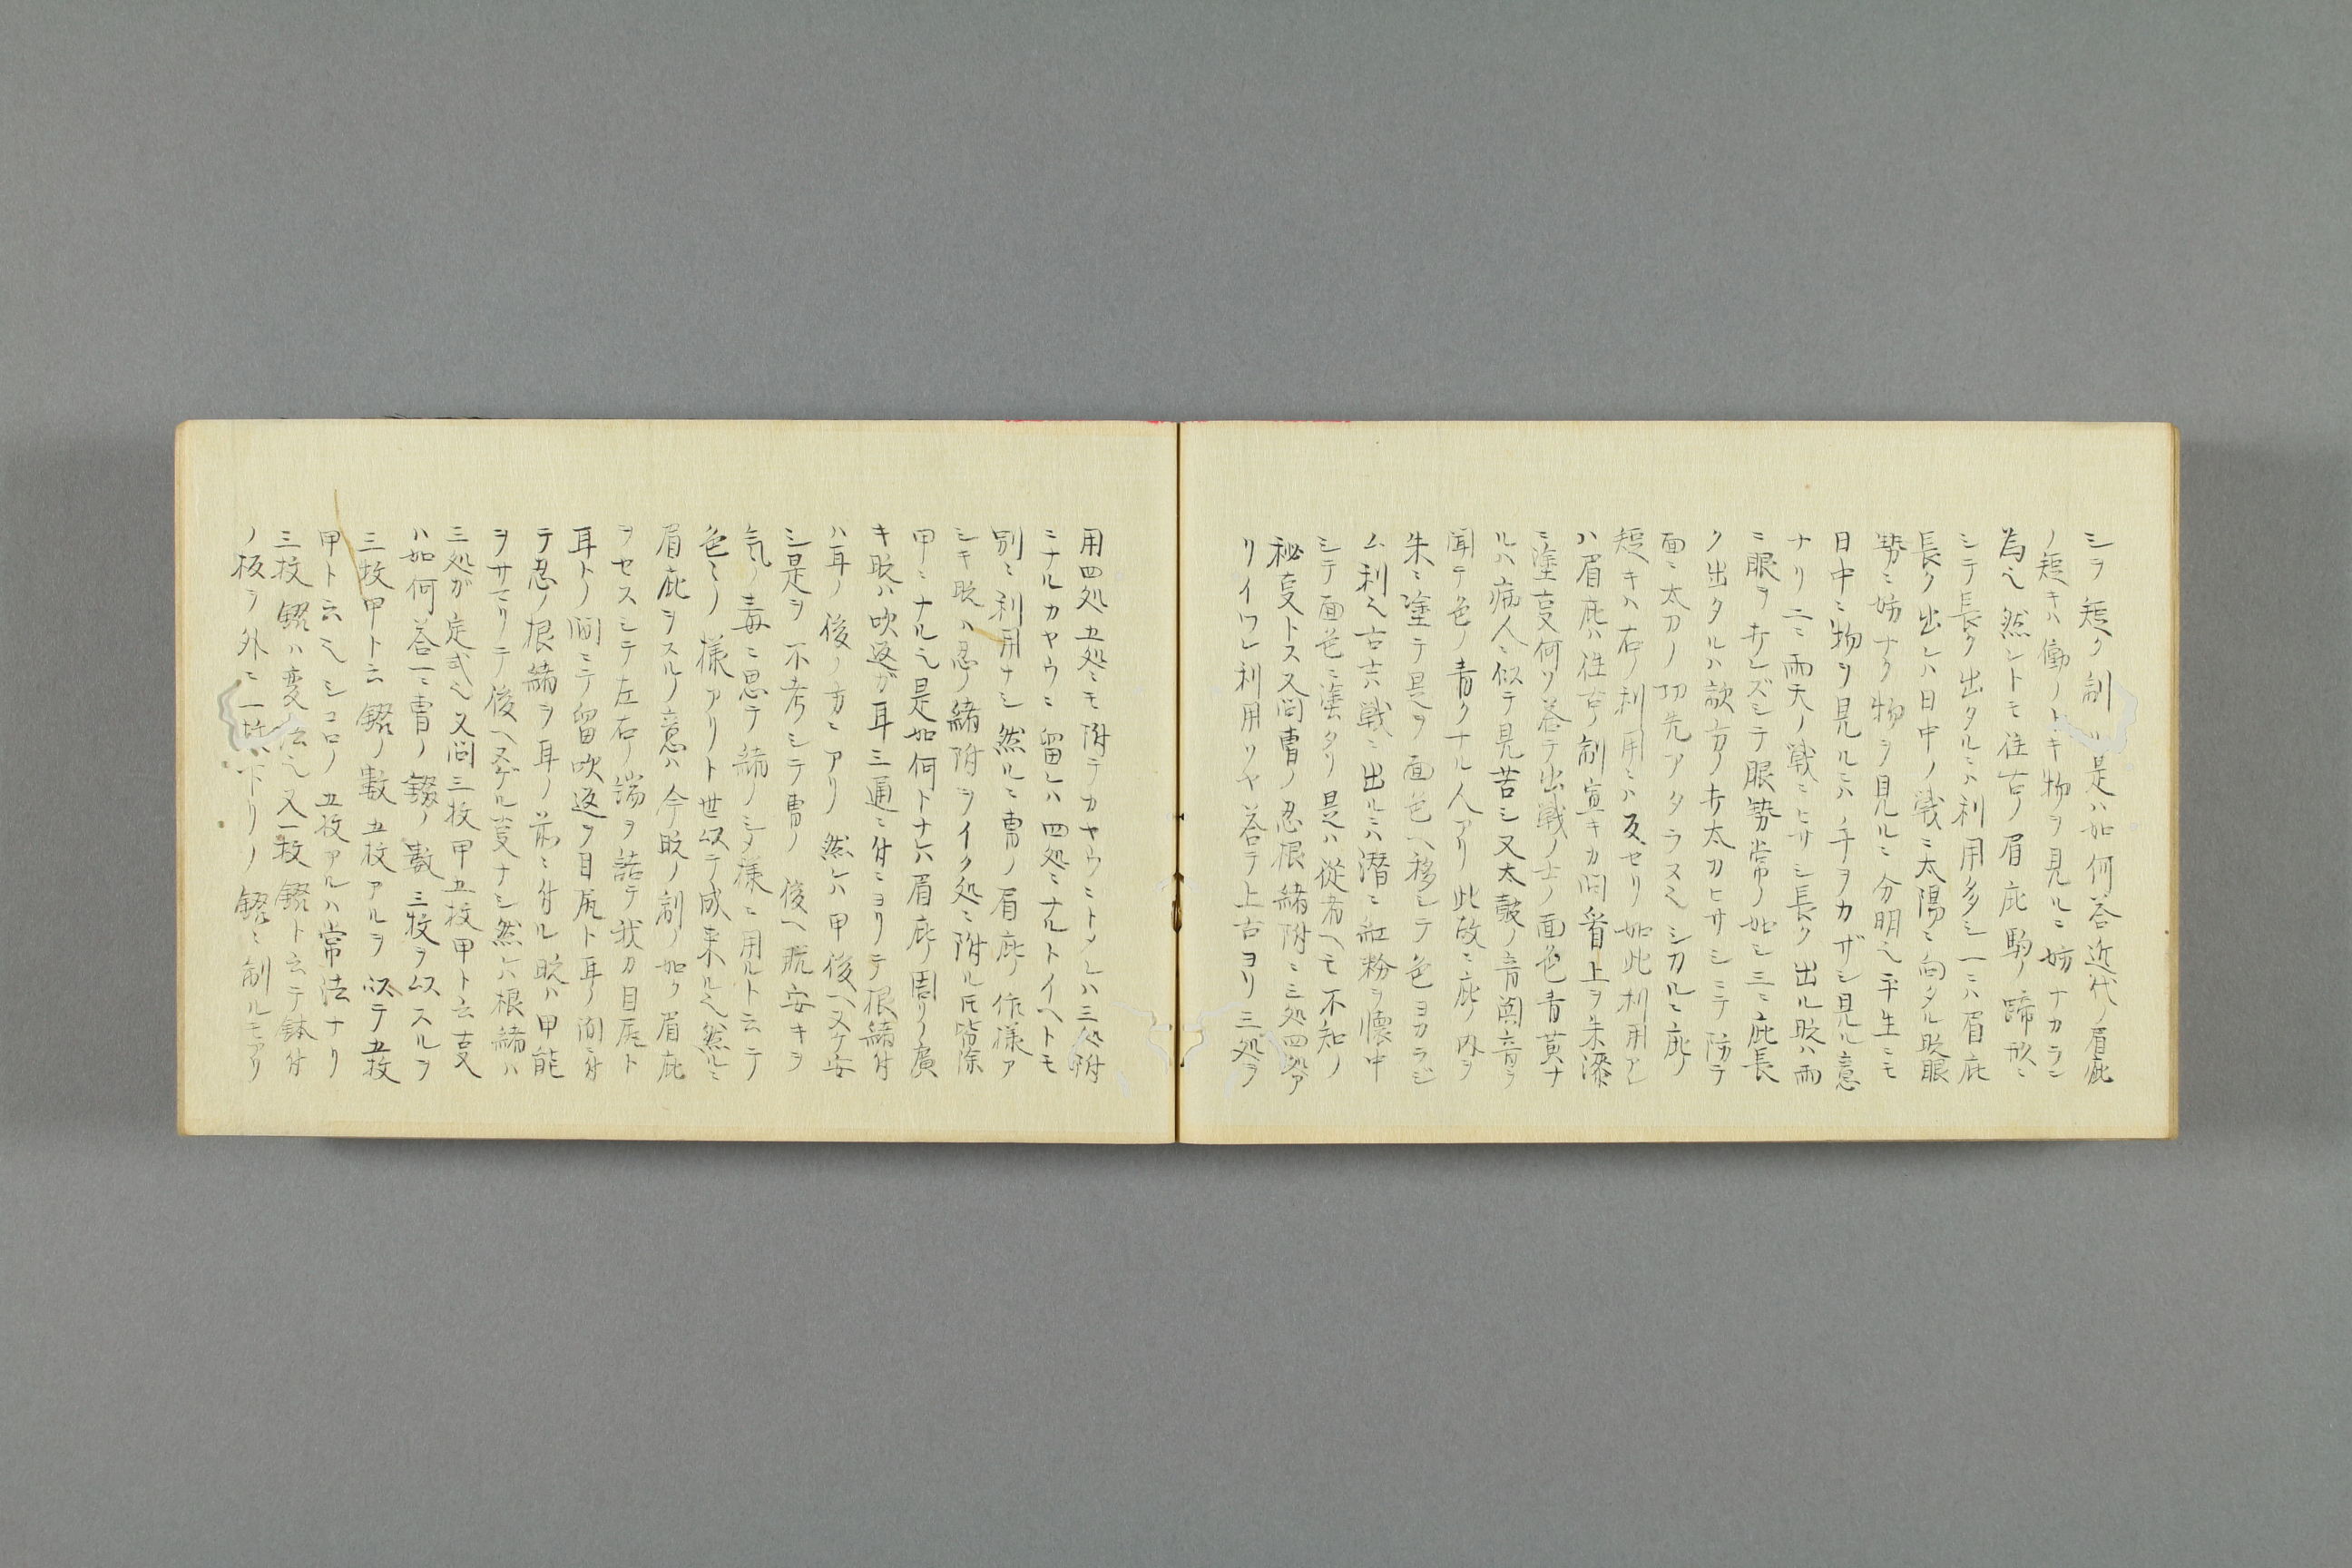 シラ短ク制　是ハ如何答近代ノ眉庇
ノ短キハ働ノトキ物ヲ見ルニ妨ナカラン
為也然レトモ往古ノ眉庇駒ノ蹄形ニ
シテ長ク出タルニハ利用多シ一ニハ眉庇
長ク出レハ日中ノ戦ニ太陽ニ向タル時眼
勢ニ妨ナク物ヲ見ルニ分明也平生ニモ
日中ニ物ヲ見ルニハノ手ヲカザシ見ル意
ナリ二ニ雨天ノ戦ニヒサシ長ク出ル時ハ雨
ニ眼ヲ打レズシテ眼勢常ノ如シ三ニ庇長
ク出タルハ敵方ノ打太刀ヒサシニテ防テ
面ニ太刀ノ切先アタラス也シカルニ庇ノ
短キハ右ノ利用ニハ反セリ如此利用アレ
ハ眉庇ハ往古ノ制宜キカ問眉上ヲ朱漆
ニ塗事何ソ答テ出戦ノ士ノ面色青黄ナ
ルハ病人ニ似テ見苦シ又太鼓ノ音鬨音ヲ
聞テ色ノ青クナル人アリ此故ニ庇ノ内ヲ
朱ニ塗テ是ヲ面色ヘ移シテ色ヨカラシ
ム利也古ヘハ戦ニ出ルニハ潜ニ紅粉ヲ懐中
シテ面色ニ塗タリ是ハ従者ヘモ不知ノ
秘事トス又問冑ノ忍根緒附ニ三処四処ア
リイツレ利用リヤ答テ上古ヨリ三処ヲ
用四処五処ニモ附テカヤウニトメレハ三処附
ニナルカヤウニ留レハ四処ニナルトイヘトモ
別ニ利用ナシ然ルニ冑ノ眉庇ノ作様ア
シキ時ハ忍ノ緒附ヲイク処ニ附ル氏皆除
甲ニナル也是如何トナレハ眉庇ノ周リノ広
キ時ハ吹返ガ耳三通ニ付ニヨリテ根緒付
ハ耳ノ後ノ方ニアリ然レハ甲後ヘヌケ安
シ是ヲ不考シテ冑ノ後ヘ脱安キヲ
気ノ毒ニ思テ緒ノシメ様ニ用ルト云テ
色ミノ様アリト世以テ成来ル也然ルニ
眉庇ヲスルノ意ハ今時ノ制ノ如ク眉庇
ヲセスシテ左右ノ端ヲ詰テ我カ目尻ト
耳トノ間ニテ留吹返ヲ目尻ト耳ノ間ニ付
テ忍ノ根緒ヲ耳ノ前ニ付ル時ハ甲能
ヲサマリテ後ヘヌゲル事ナシ然レハ根緒ハ
三処ガ定式也又問三枚甲五枚甲ト云事
ハ如何答一ニ冑ノ錣ノ数三枚ヲ以スルヲ
三枚甲ト云錣ノ数五枚アルヲ以テ五枚
甲ト云也シコロノ五枚アルハ常法ナリ
三枚錣ハ変法也又一枚錣ト云テ鉢付
ノ板ヲ外ニ一　下リノ錣ニ制ルモアリ